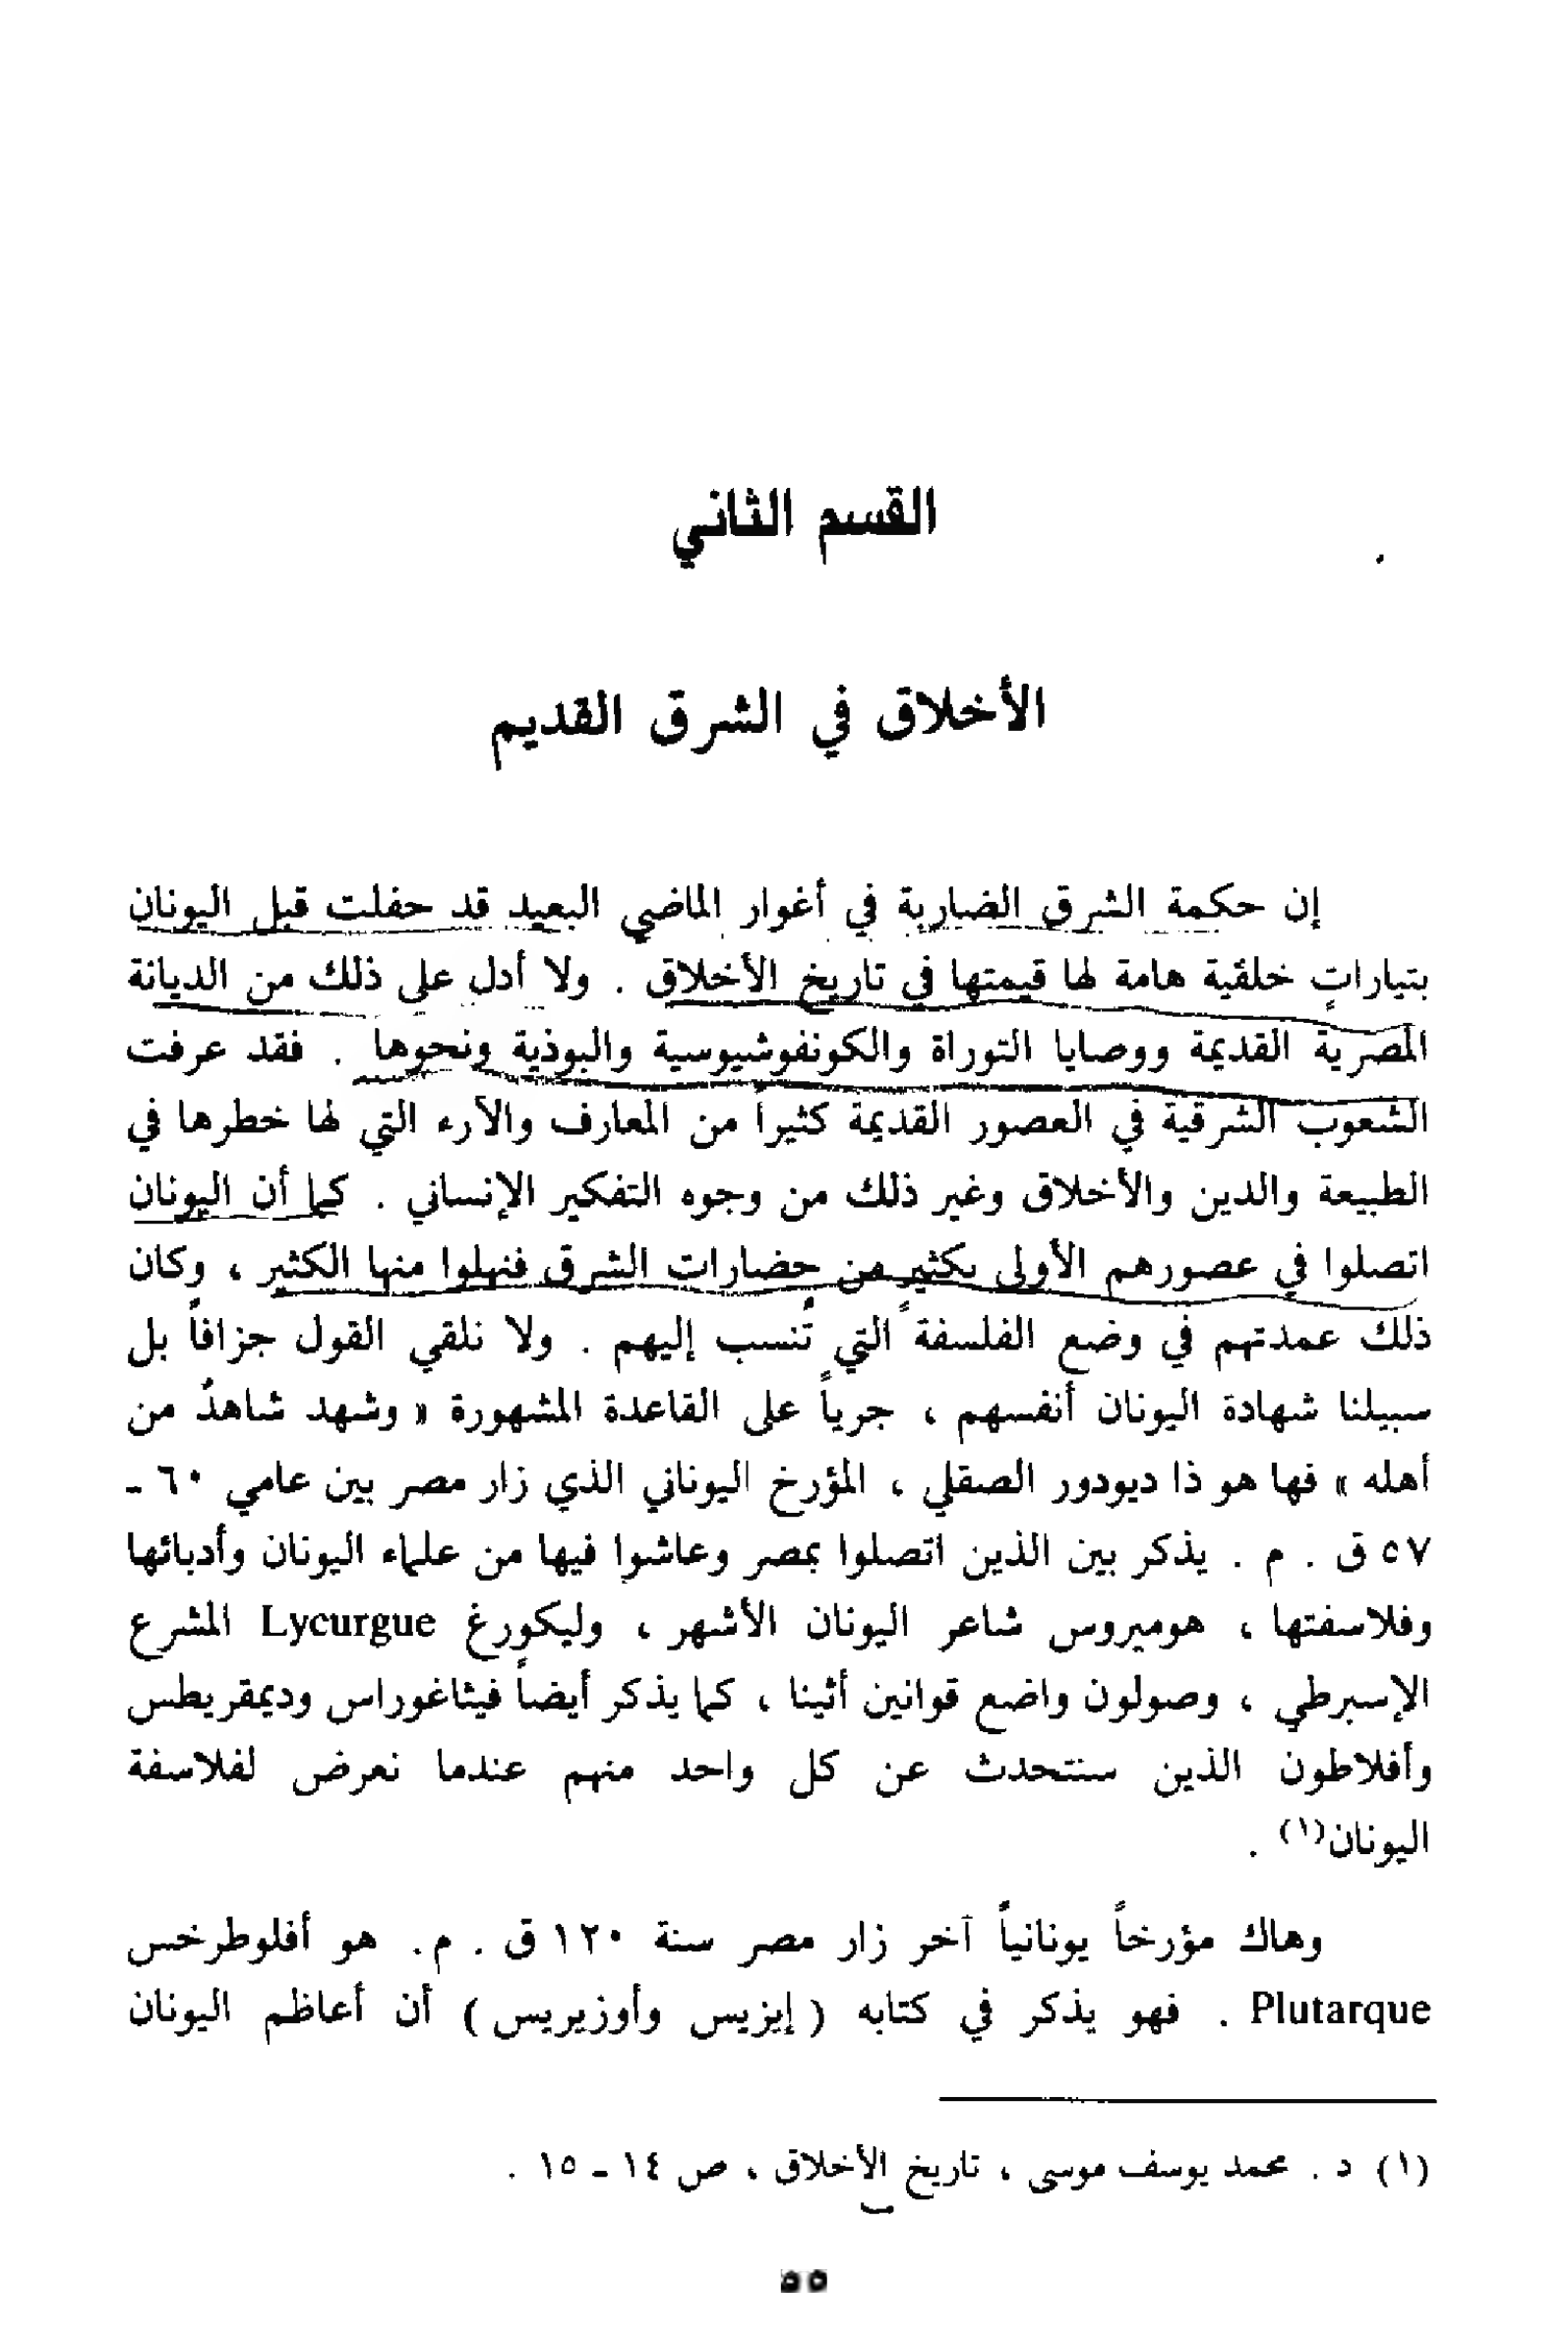 القسم الثاني
الأخلاق في الشرق القديم
إن حكمة الشرق الضاربة في أغوار الماضي البعيد قد حفلت قبل اليونان
بتياراتٍ خلقية هامة لها قيمتها في تاريخ الأخلاق . ولا أدل على ذلك من الديانة
المصرية القديمة ووصايا التوراة والكونفوشيوسية والبوذية ونحوها . فقد عرفت
الشعوب الشرقية في العصور القديمة كثيراً من المعارف والآرء التي لها خطرها في
الطبيعة والدين والأخلاق وغير ذلك من وجوه التفكير الإنساني . كما أن اليونان
اتصلوا في عصورهم الأولى بكثير من حضارات الشرق فنهلوا منها الكثير ، وكان
ذلك عمدتهم في وضع الفلسفة التي تُنسب إليهم . ولا نلقي القول جزافاً بل
سبيلنا شهادة اليونان أنفسهم ، جرياً على القاعدة المشهورة « وشهد شاهدٌ من
أهله » فها هو ذا ديودور الصقلي ، المؤرخ اليوناني الذي زار مصر بين عامي ٦٠ -
٥٧ ق . م . يذكر بين الذين اتصلوا بمصر وعاشوا فيها من علماء اليونان وأدبائها
وفلاسفتها ، هوميروس شاعر اليونان الأشهر ، وليكورغ Lycurgue المشرع
الإسبرطي ، وصولون واضع قوانين أثينا ، كما يذكر أيضاً فيثاغوراس وديمقريطس
وأفلاطون الذين سنتحدث عن كل واحد منهم عندما نعرض لفلاسفة
اليونان(١) .
وهاك مؤرخاً يونانياً آخر زار مصر سنة ١٢٠ ق . م. هو أفلوطرخس
Plutarque . فهو يذكر في كتابه ( إيزيس وأوزيريس ) أن أعاظم اليونان
(١) د . محمد يوسف موسى ، تاريخ الأخلاق ، ص ١٤ - ١٥ .
٥٥